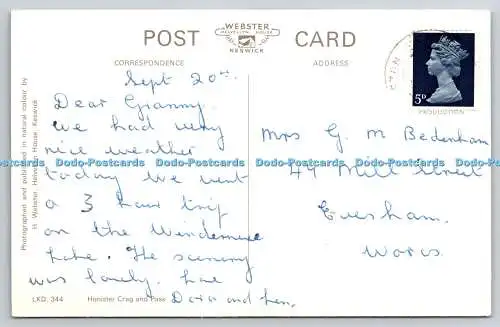 POST CARD
WEBSTER
HELVELLYN HOUSE
KESWICK
CORRESPONDENCE
ADDRESS
Sept 20th
Dear Granny.
We had very
nice weather
today We went
a 3 hour trip
on the Windermere
Lake. The scenery
was lovely. Love
Dora and Len.
Mrs G M Bedenham
49 Mill Street
Evesham.
Worcs
5D
PRODUCTION
Photographed and published in natural colour by
Webster, Helvellyn House, Keswick
LKD. 344
Honister Crag and Pass
Dodo-Postcards Dodo-Postcards Dodo-Postcards Dodo-Postcards Dodo-Postcards